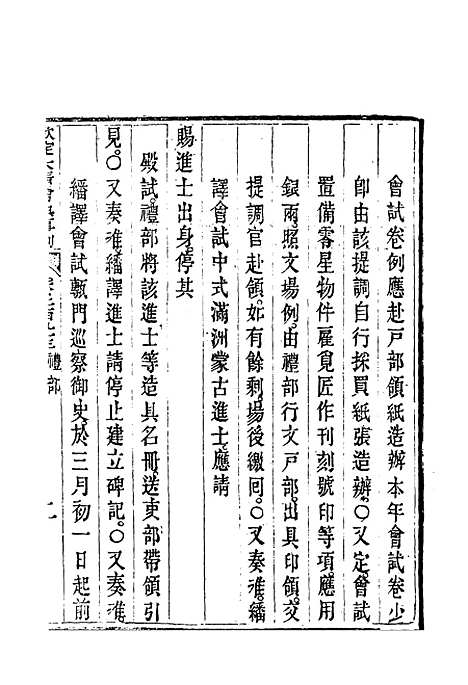 會試卷例應赴戸部領紙造辦本年會試卷少
卽由該提調自行採買紙張造辦。〇又定會試
置備零星物件雇覓匠作刊刻號印等項應用
銀兩照文場例由禮部行文戸部出具印領交
提調官赴領如有餘剩場後繳回〇又奏准繙
譯會試中式滿洲蒙古進士應請
賜進士出身停其
殿試禮部將該進士等造具名冊送吏部帶領引
見〇又奏准繙譯進士請停止建立碑記〇又奏准
繙譯會試甎門巡察御史於三月初一日起前
欽定大清會典事例 禮部